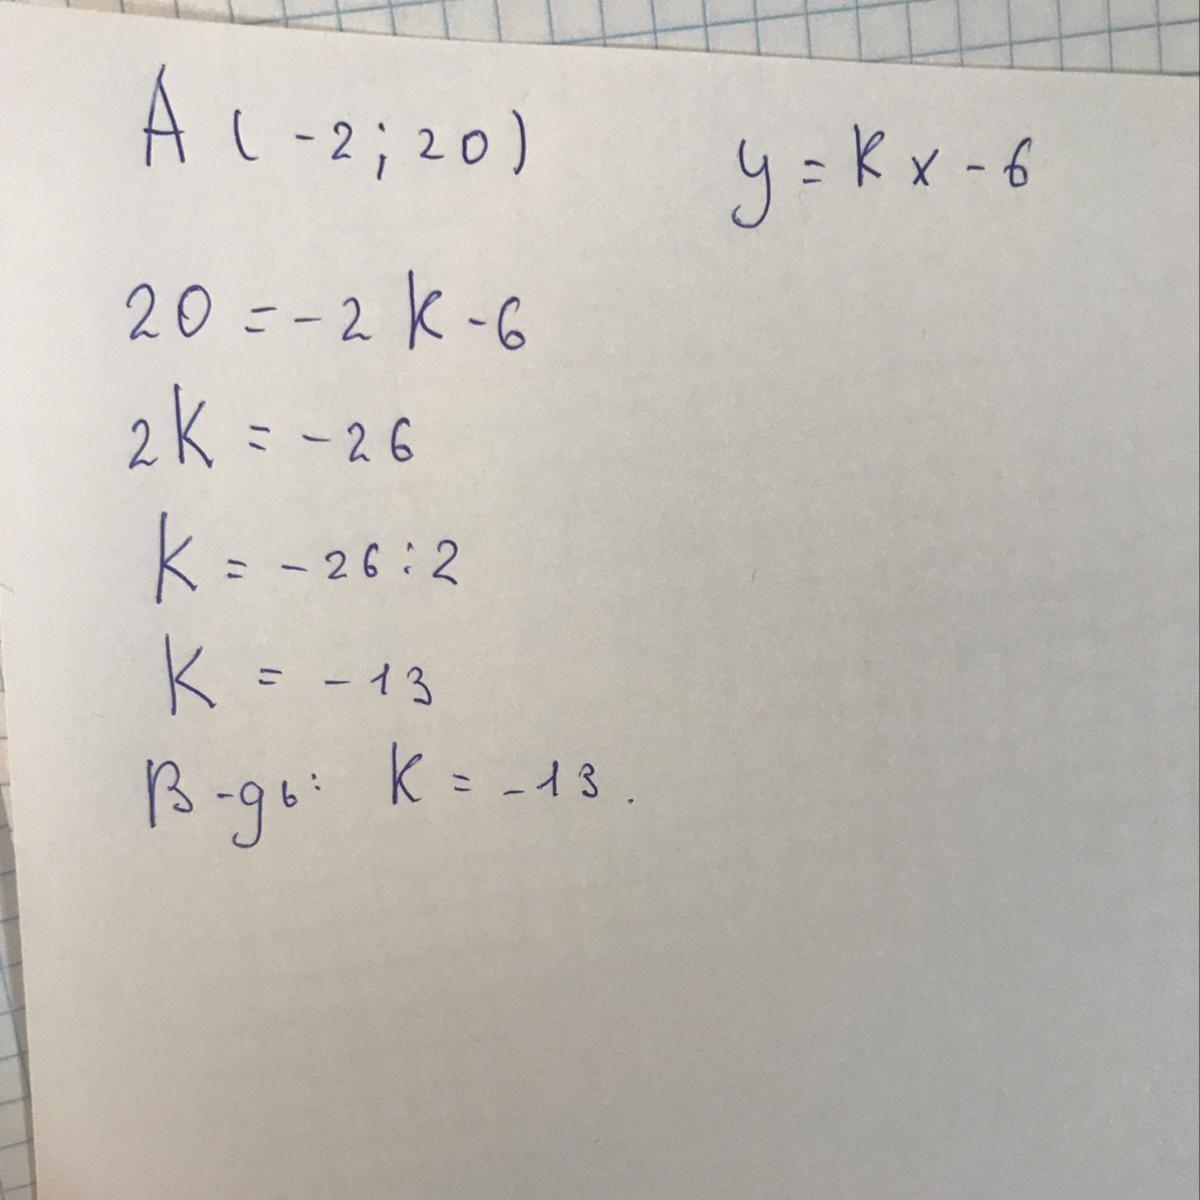 A (-2; 20) y = kx - 6
20 = -2k - 6
2k = -26
k = -26 : 2
k = -13
В-дь: k = -13.